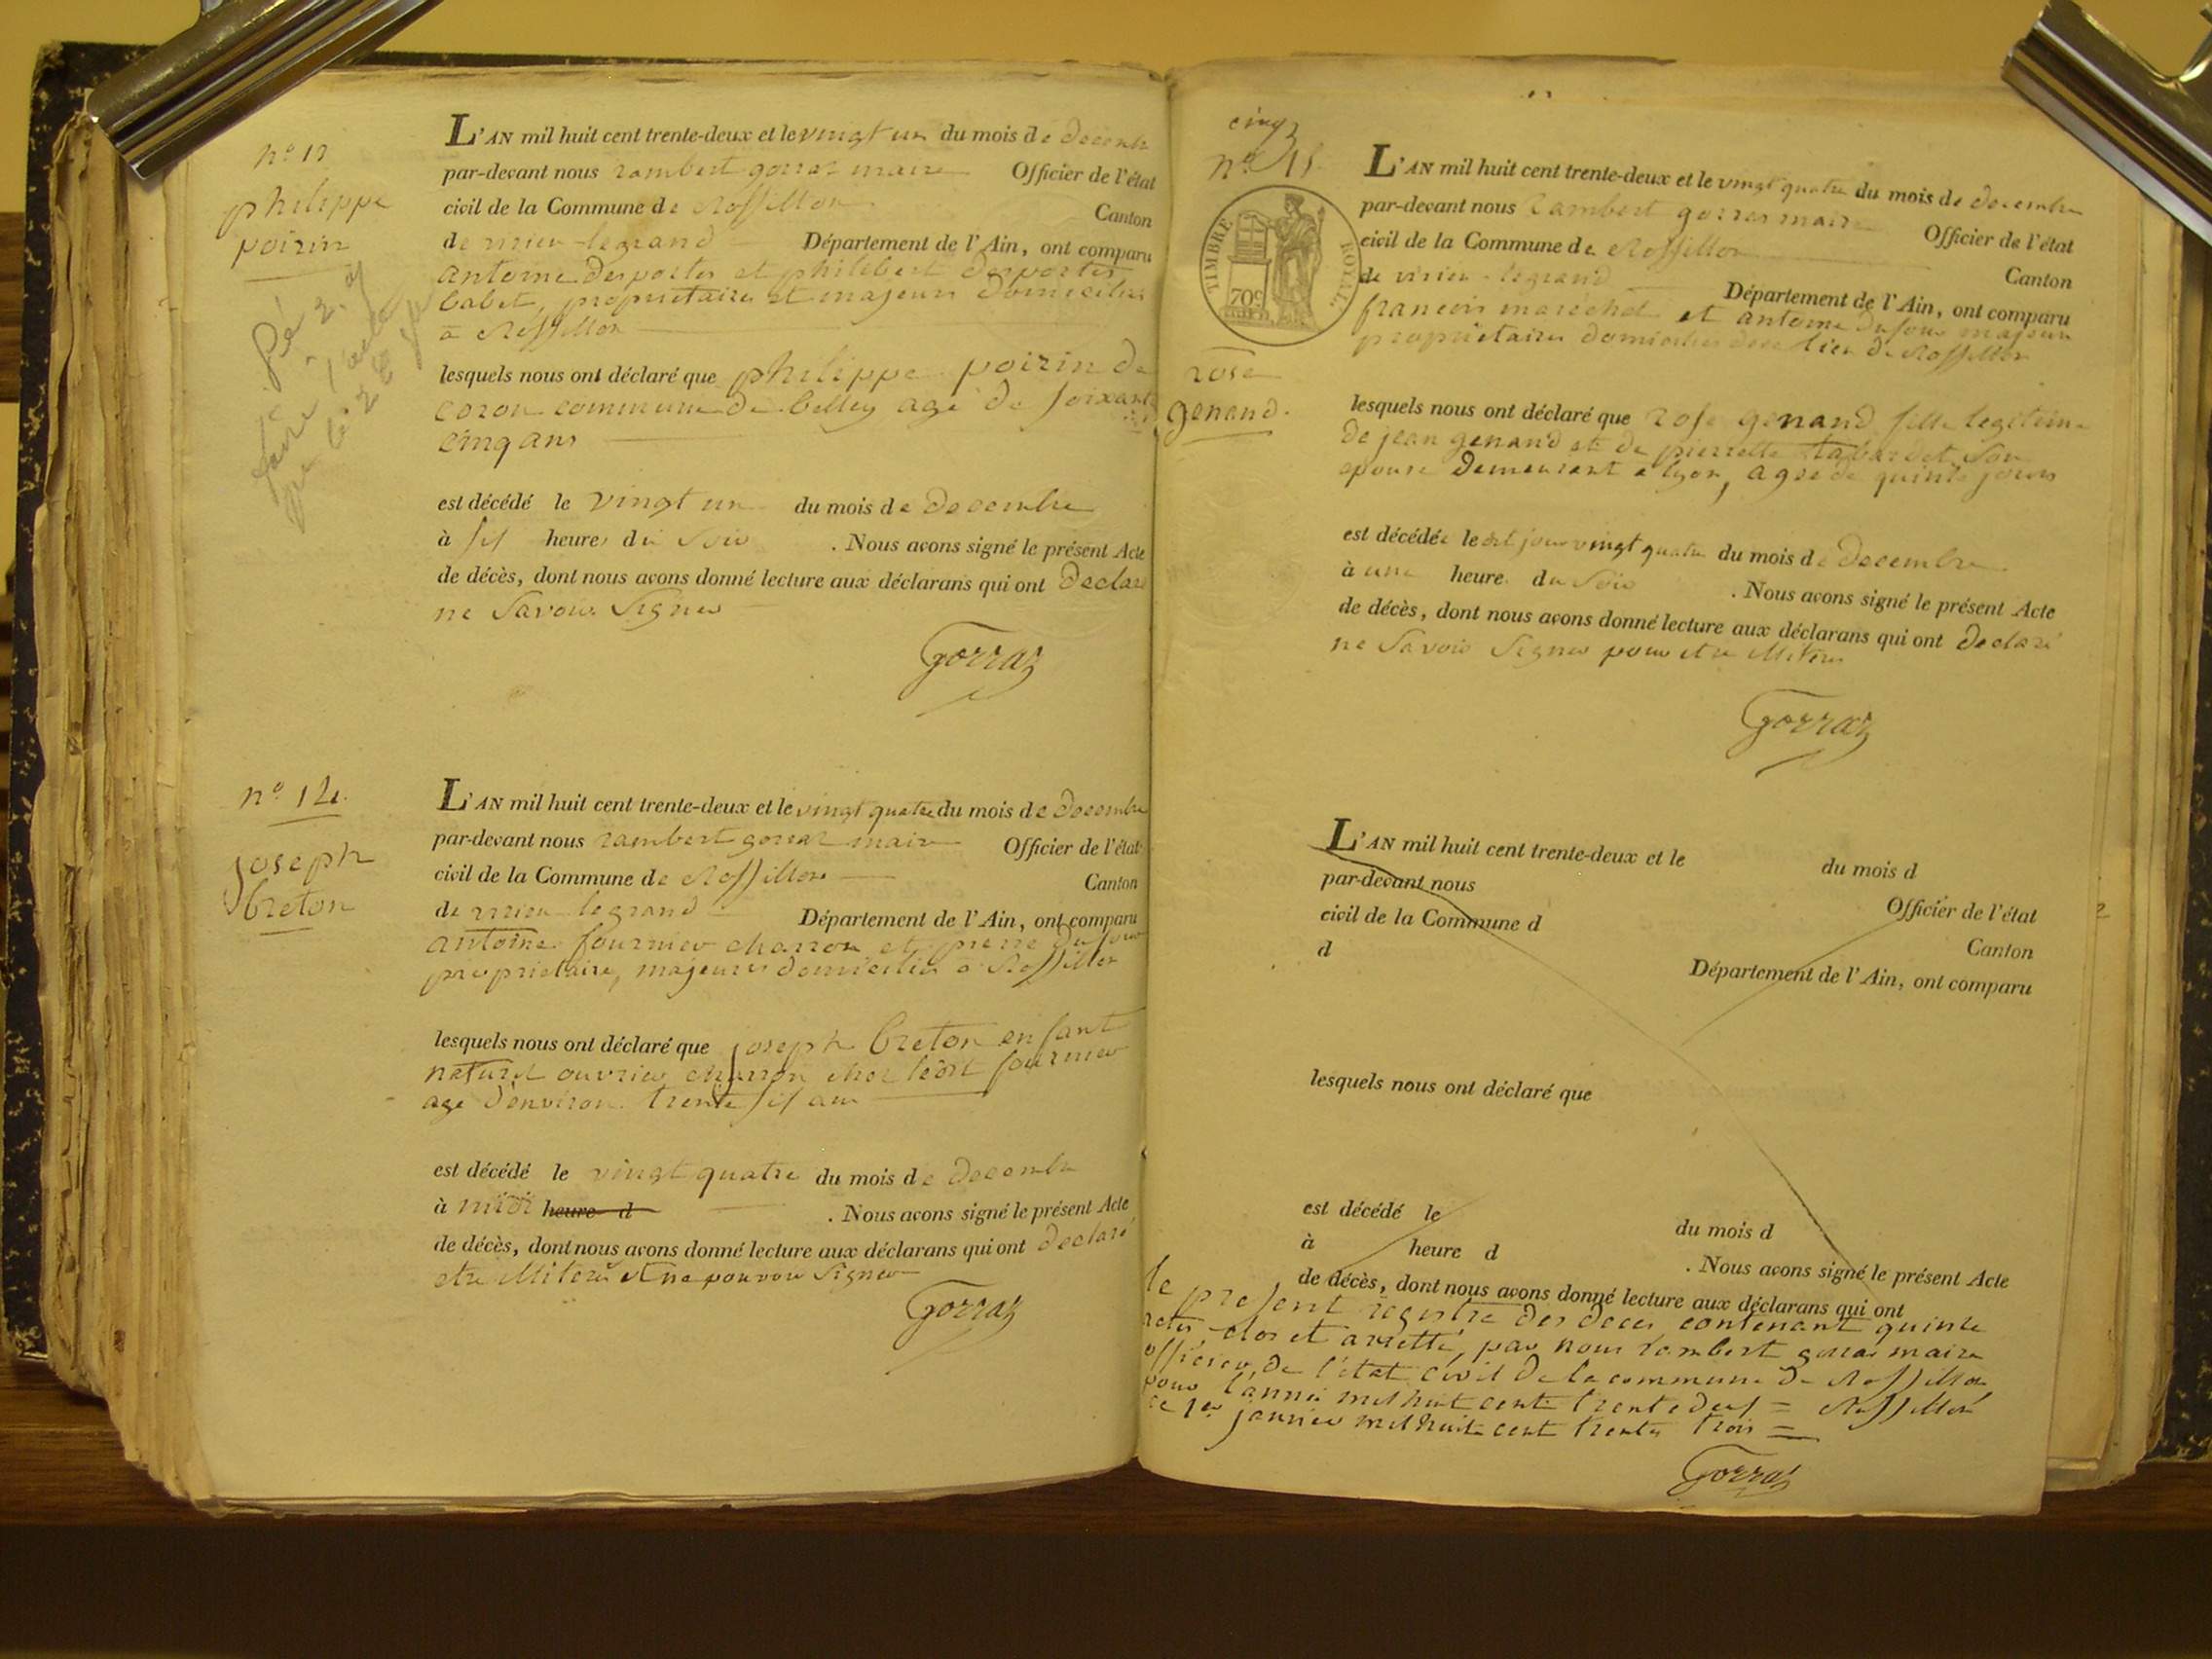 n° 13
philippe
poirin
L'AN mil huit cent trente-deux et le vingt un du mois de decembre
par-devant nous rambert gorraz maire Officier de l'état
civil de la Commune de Rossillon Canton
de virieu-legrand Département de l'Ain, ont comparu
antoine desportes et philibert desportes
babet, proprietaires et majeurs domiciliés
a Rossillon
lesquels nous ont déclaré que philippe poirin de
coron commune de belley agé de soixante
cinq ans
est décédé le vingt un du mois de decembre
à six heures du soir . Nous avons signé le présent Acte
de décès, dont nous avons donné lecture aux déclarans qui ont declaré
ne savoir signer
Gorraz
n° 14.
joseph
breton
L'AN mil huit cent trente-deux et le vingt quatre du mois de decembre
par-devant nous rambert gorraz maire Officier de l'état
civil de la Commune de Rossillon Canton
de virieu legrand Département de l'Ain, ont comparu
antoine fournier charron et pierre dufour
proprietaire, majeurs domiciliés a Rossillon
lesquels nous ont déclaré que joseph breton enfant
naturel ouvrier charron chez ledit fournier
agé d'environ trente six ans
est décédé le vingt quatre du mois de decembre
à midi heure d . Nous avons signé le présent Acte
de décès, dont nous avons donné lecture aux déclarans qui ont declaré
etre illiteré et ne pouvoir signer
Gorraz
cinq
n° 15.
TIMBRE ROYAL.
70c
rose
genand.
L'AN mil huit cent trente-deux et le vingt quatre du mois de decembre
par-devant nous rambert gorraz maire Officier de l'état
civil de la Commune de Rossillon Canton
de virieu-legrand Département de l'Ain, ont comparu
francois maréchal et antoine dufour majeurs
proprietaires domiciliés lieu de Rossillon
lesquels nous ont déclaré que rose genand fille legitime
de jean genand et de pierrette tabardet son
epouse demeurant a lyon, agée de quinze jours
est décédée le dit jour vingt quatre du mois de decembre
à une heure du soir . Nous avons signé le présent Acte
de décès, dont nous avons donné lecture aux déclarans qui ont declaré
ne savoir signer pour etre illiterés
Gorraz
L'AN mil huit cent trente-deux et le du mois d
par-devant nous Officier de l'état
civil de la Commune d Canton
d Département de l'Ain, ont comparu
lesquels nous ont déclaré que
est décédé le du mois d
à heure d . Nous avons signé le présent Acte
de décès, dont nous avons donné lecture aux déclarans qui ont
le present registre des deces contenant quinze
actes clos et arretté, par nous rambert gorraz maire
officier de l'état civil de la commune de Rossillon
pour l'année mil huit cent trente deux = Rossillon
ce 1er janvier mil huit cent trente trois =
Gorraz